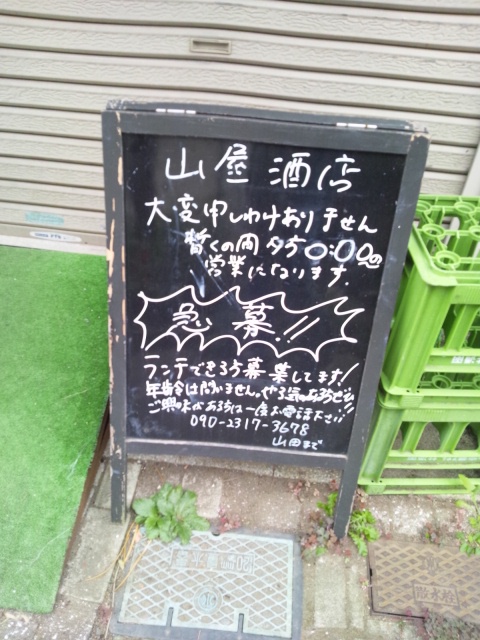 山屋酒店
大変申しわけありません
暫くの間夕方○:○○の
営業になります.
急募!!
ランチできる方募集してます!
年齢は問いません。やる気のある方ぜひ!!
ご興味がある方は一度お電話下さい!!
090-2317-3678
山田まで
散水栓